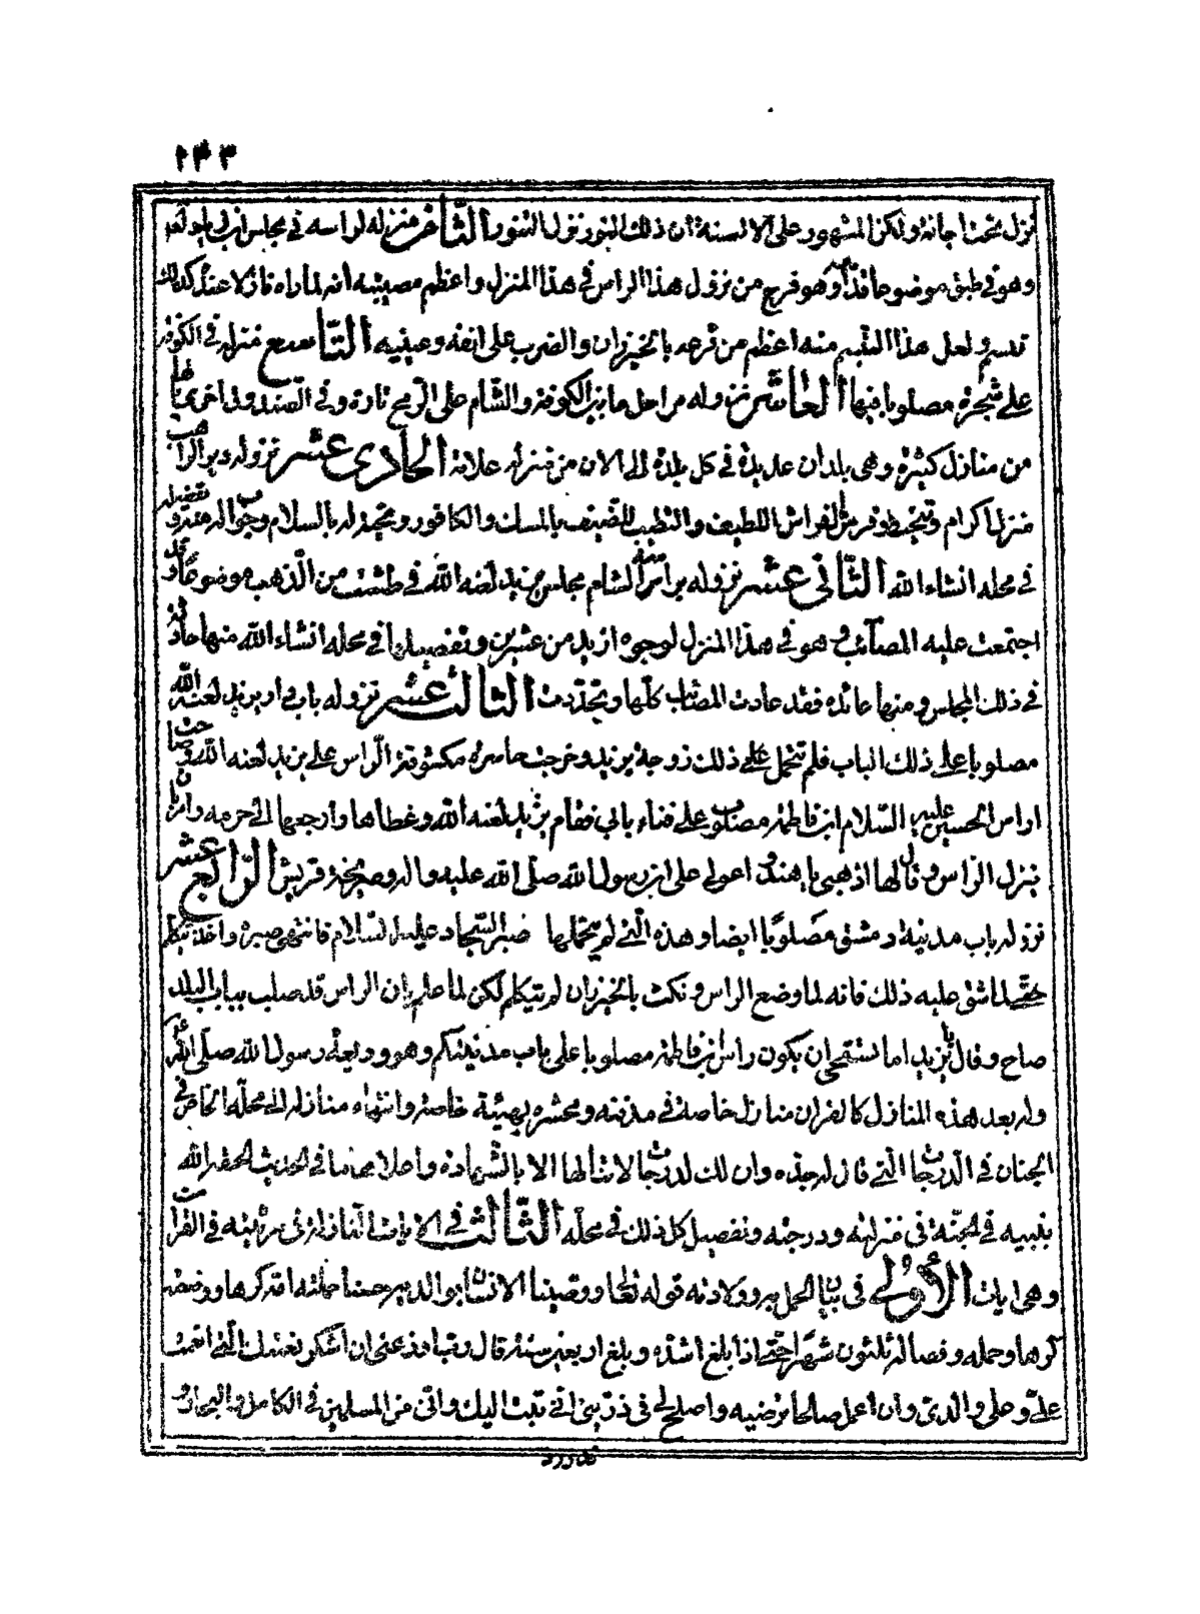 ١٣٣
نزل تحت اجانة ولكن المشهور على الالسنة ان ذلك التنور نزول التنور الثامن منزله لراسه في مجلس ابن زياد لعنه
وهو في طبق موضوعا قدامه وهو فرح من نزول هذا الراس في هذا المنزل واعظم مصيبته انه لما راه نازلا عنده كذلك
تبسم ولعل هذا التبسم منه اعظم من قرعه بالخيزران والضرب على انفه وعينيه التاسع منزله في الكوفة
على شجرة مصلوبا فيها العاشر نزوله مراحل ما بين الكوفة والشام على الرمح تارة وفي الصندوق اخرى لها
من منازل كثيرة وهي بلدان عديدة في كل بلدة الى الان من منزله علامة الحادي عشر نزوله دير الراهب
منزل اكرام وتحنيط وفرش الفراش اللطيف والتطيب للضيف بالمسك والكافور وتحية له بالسلام وجواله عنه وتفصيله
في محله انشاء الله الثاني عشر نزوله براس الشام مجلس يزيد لعنه الله في طشت من الذهب موضوعا وقد
اجتمعت عليه المصائب وهو في هذا المنزل لوجوه ازيد من عشرين وتفصيلها في محله انشاء الله منها حادثة
في ذلك المجلس ومنها عائدة فقد عادت المصائب كلها وتجددت الثالث عشر نزوله باب دار يزيد لعنه الله
مصلوبا على ذلك الباب فلم تتحمل على ذلك زوجة يزيد وخرجت حاسرة مكشوفة الراس على يزيد لعنه الله وصاحت
اراس الحسين عليه السلام ابن فاطمة مصلوب على فناء بابي فقام يزيد لعنه الله وغطاها وارجعها الى حرمه وامر بان
ينزل الراس وقال لها اذهبي يا هند و اعولي على ابن رسول الله صلى الله عليه واله وصريخة قريش الرابع عشر
نزوله باب مدينة دمشق مصلوبا ايضا وهذه التي لم يتحملها صبر السجاد عليه السلام فانتهى صبره واخذ يتكلم
حتى لما شق عليه ذلك فانه لما وضع الراس ونكت بالخيزران لم يتكلم لكن لما علم ان الراس قد صلب بباب البلد
صاح وقال يا يزيد اما تستحي ان يكون راس ابن فاطمة مصلوبا على باب مدينتكم وهو وديعة رسول الله صلى الله عليه
وله بعد هذه المنازل كالقران منازل خاصة في مدفنه ومحشره بهيئة خاصة وانتهاء منازله الى محله الخاص في
الجنان في الدرجات التي قال له جده وان لك لدرجات لا تنالها الا بالشهادة واعلامهما في الحديث الحقه الله
بنبيه في الجنة في منزلته ودرجته وتفصيل كل ذلك في محله الثالث في الايات النازلة في مرثيته في القران
وهي ايات الاولى في بيان الحمل به وولادته قوله تعالى ووصينا الانسان بوالديه حسنا حملته امه كرها ووضعته
كرها وحمله وفصاله ثلثون شهرا حتى اذا بلغ اشده وبلغ اربعين سنة قال رب اوزعني ان اشكر نعمتك التي انعمت
علي وعلى والدي وان اعمل صالحا ترضيه واصلح لي في ذريتي اني تبت اليك واني من المسلمين في الكامل والبحار